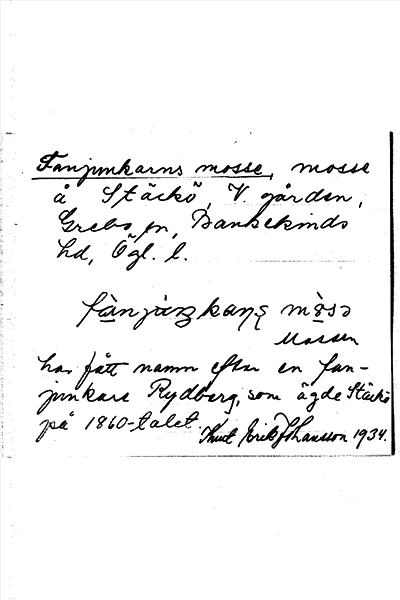 Fanjunkarns mosse, mosse
å Stäckö, V. gården,
Grebo sn, Bankekinds
hd, Ögl. l.
mò̱sə
Mossen
har fått namn efter en fan-
junkare Rydberg, som ägde Stäckö
på 1860-talet.
Knut Erik Johansson 1934.